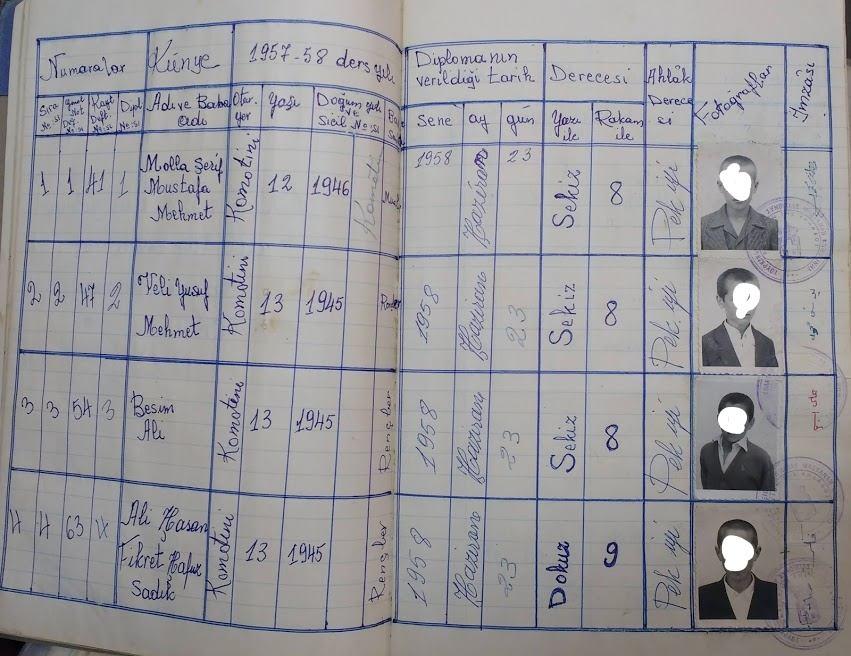 Numaralar Künye 1957-58 ders yılı Diplomanın verildiği tarih Derecesi Ahlâk Derecesi Fotoğraflar İmzâsı
Sıra No:sı Dipl No:sı Adı ve Baba adı Otur. yer Yaşı Doğum yılı ve Sicil No:su Sene ay gün Yazı ile Rakam ile
1 1 41 1 Molla Şerif Mustafa Mehmet Komotini 12 1946 1958 Haziran 23 Sekiz 8 Pek iyi
2 2 47 2 Veli Yusuf Mehmet Komotini 13 1945 1958 Haziran 23 Sekiz 8 Pek iyi
3 3 54 3 Besim Ali Komotini 13 1945 Rençber 1958 Haziran 23 Sekiz 8 Pek iyi
4 4 63 4 Ali Hasan Fikret Hafuz Sadık Komotini 13 1945 Rençber 1958 Haziran 23 Dokuz 9 Pek iyi